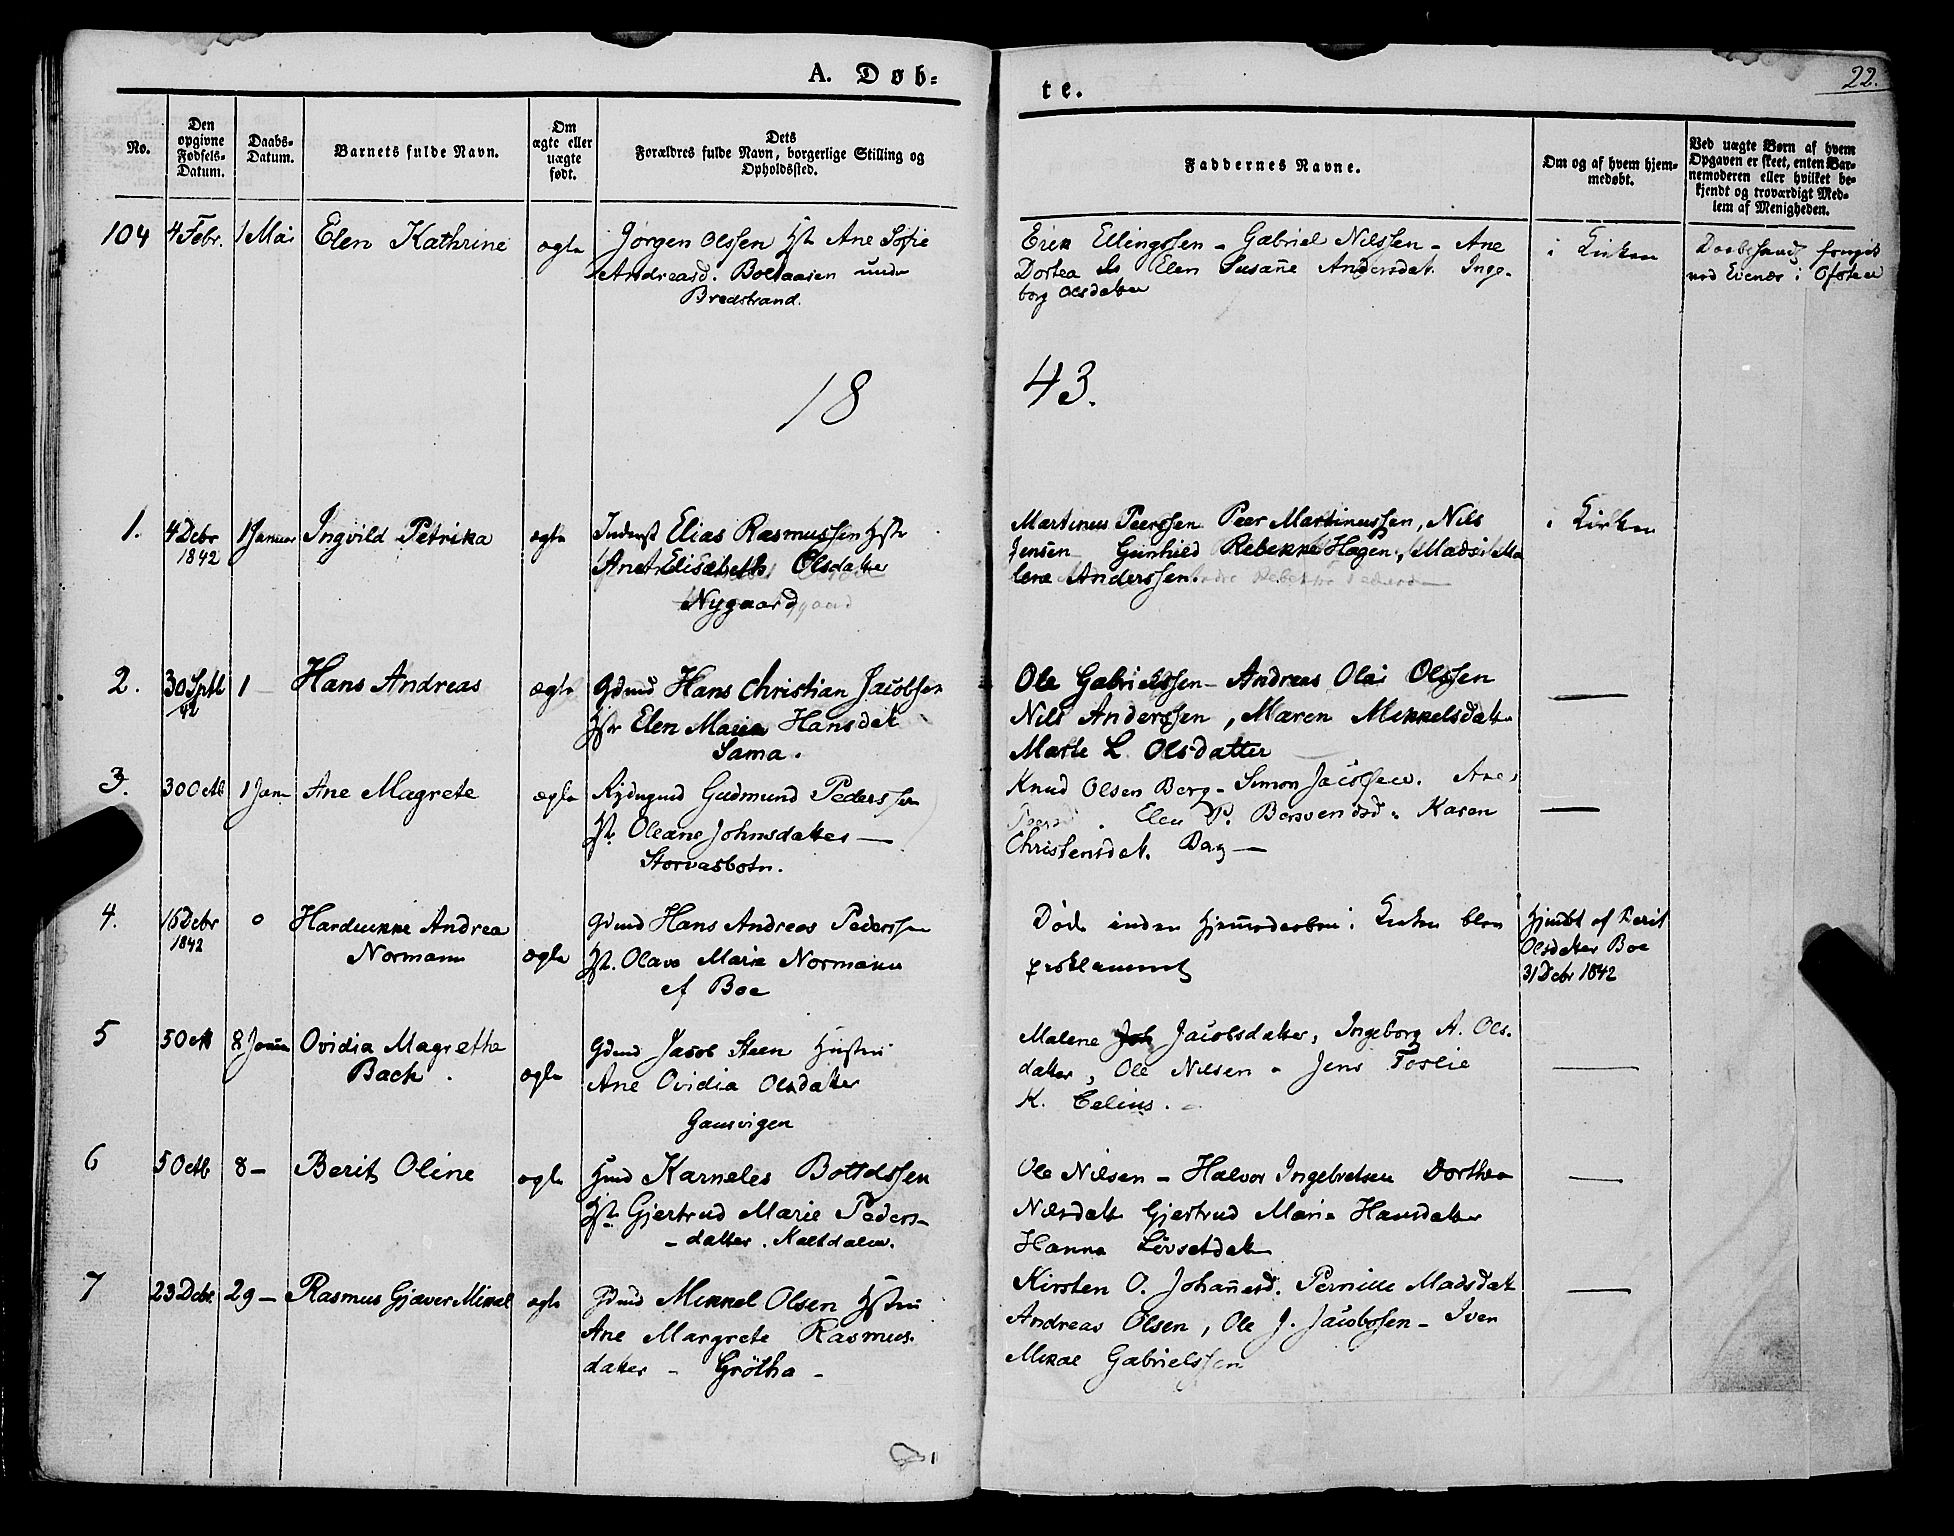 A. Døb=
te.
22.
No.
Den
opgivne
Fødsels-
Datum.
Daabs-
Datum.
Barnets fulde Navn.
Om
ægte eller
uægte
født.
Dets
Forældres fulde Navn, borgerlige Stilling og
Opholdssted.
Faddernes Navne.
Om og af hvem hjem-
medøbt.
Ved uægte Børn af hvem
Opgaven er skeet, enten Bar-
nemoderen eller hvilket be-
kjendt og troværdigt Med-
lem af Menigheden.
104 4 Febr. 1 Mai Elen Kathrine ægte Jørgen Olssen Hst Ane Sofie
Andreasd. under
Bredstrand.
Erik Ellingssen - Gabriel Nilssen - Ane
Dortea Elen Susane Andersdat. Inge-
borg Olsdatter
i Kirken
Evenæs i Ofoten
18 43.
1. 4 Debr 1 Januar Ingvild Petrika ægte Inderst Elias Rasmussen Hstr
1842
Ane Elisabeth Olsdatter
Nygaard
Martinus Peerssen Peer Martinussen, Nils
Jensen Gunhild Rebekke Hagen, Mads Ma
lene Anderssen.
i Kirken
2. 30 Sptb 1 — Hans Andreas ægte Gdmd Hans Christian Jacobsen
42
Hstr Elen Maria Hansdat
Sama.
Ole Gabrielssen - Andreas Olai Olssen
Nils Anderssen, Maren Mikkelsdatter
Marte L Olsdatter
—
3. 30 Octb 1 Janr Ane Magrete ægte Rydngmd Gudmund Pederssen
Hst. Oleane Johnsdatter —
Storvasbotn.
Knud Olsen Berg - Simon Jacobsen. Ane
Elen P. Karen
Christensdat. Berg —
—
4. 16 Debr 0 Andrea
1842
Normann
ægte
Gdmd Hans Andreas Pederssen
Hst. Olava Maria Normann
af Boe
Døde inden i Kirken blev
proklammet
Hjmdbt af Berit
Olsdatter Boe
31 Debr 1842
5 5 Oct 8 Janua Ovidia Magrethe
Back.
ægte
Gdmd Jacob Steen Hustru
Ane Ovidia Olsdatter
Gausvigen
Malene Joh Jacobsdatter, Ingeborg A. Ols-
datter, Ole Nilsen - Jens Foslie
K. Celius.
—
6 5 Octb 8 — Berit Oline ægte Hmd Karneles Bottolssen
Hst. Gjertrud Marie Peders-
- datter. Kaltdalen.
Ole Nilsen - Halvor Ingebretsen Dorthea
Nilsdatt Gjertrud Maria Hansdatter
Hanna Lövsetdatt
—
7 23 Debr. 29 — Rasmus Gjæver Mikal ægte Gdmd Mikkel Olsen Hstru
Ane Margrete Rasmus-
datter - Grötha -
Kirsten O. Johanesd. Pernille Madsdat
Andreas Olsen, Ole J. Jacobssen - Iver
Mikal Gabrielssen
—